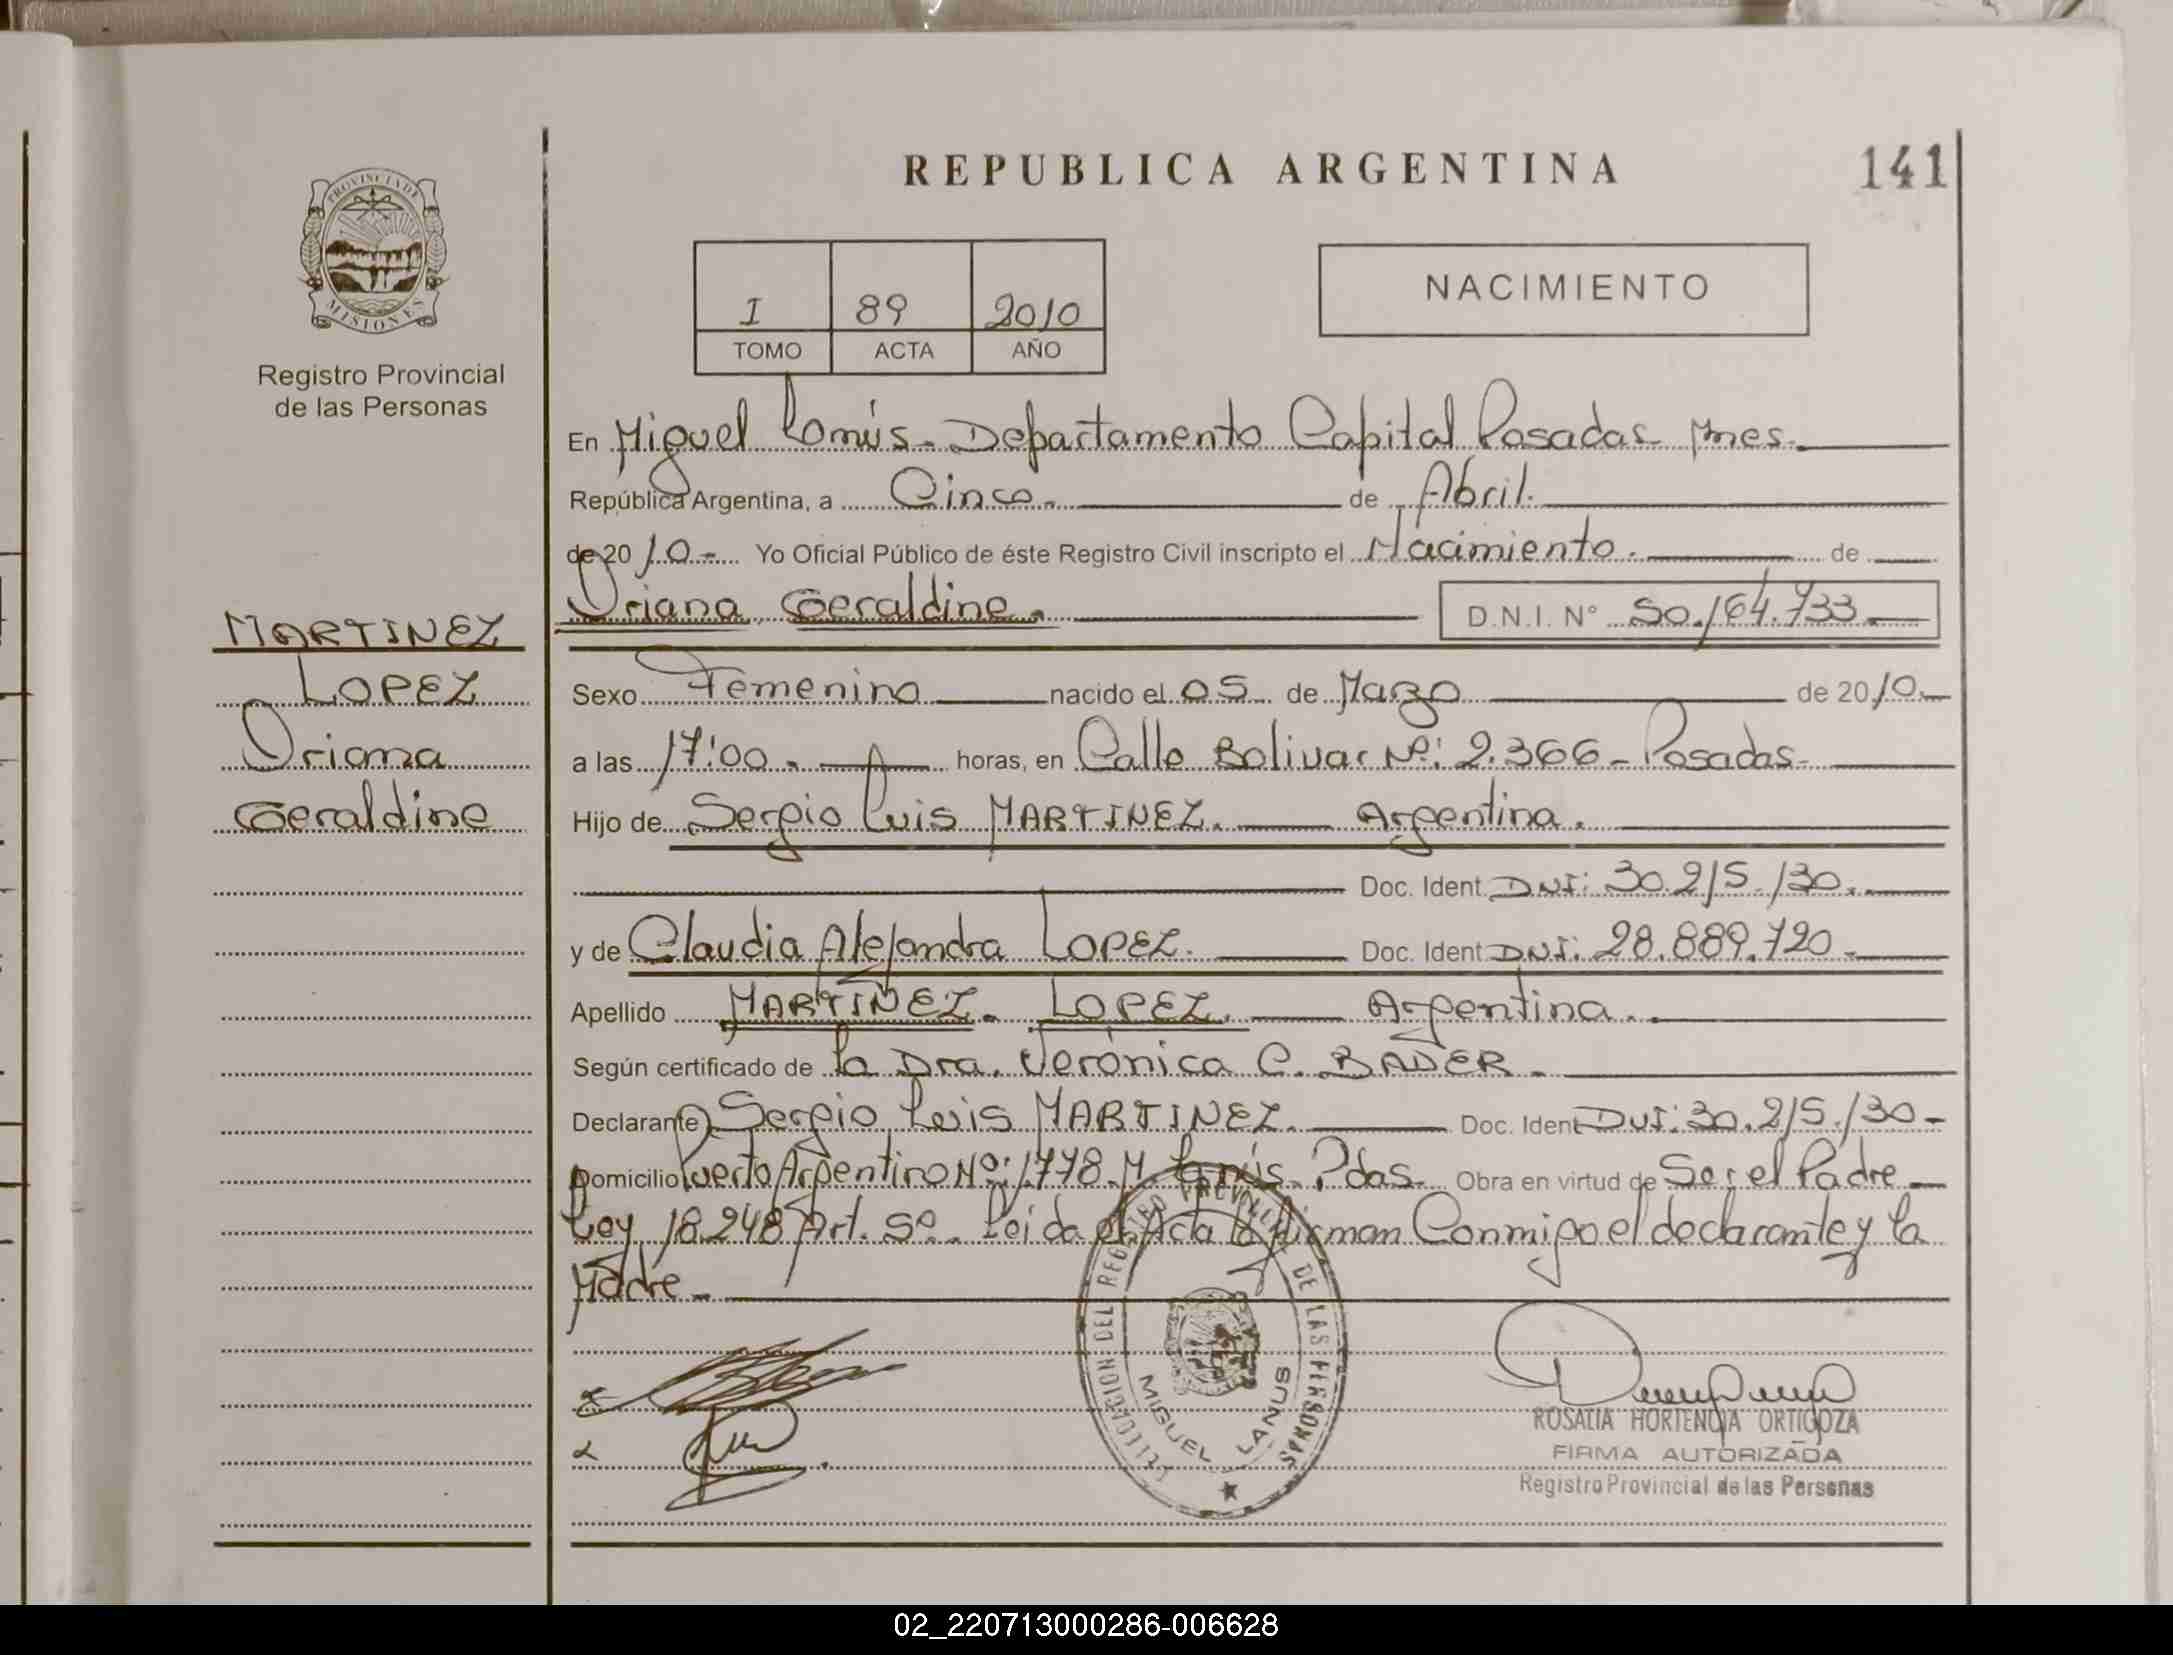 REPUBLICA ARGENTINA
141
PROVINCIA DE
MISIONES
Registro Provincial
de las Personas
I 89 2010
TOMO ACTA AÑO
NACIMIENTO
En Miguel Lanús.- Departamento Capital Posadas Mnes.
República Argentina, a Cinco.- de Abril.
de 20 10.- Yo Oficial Público de éste Registro Civil inscripto el Nacimiento. de
Oriana Geraldine.
D.N.I. Nº 50.164.733.-
MARTINEZ
LOPEZ
Oriana
Geraldine
Sexo Femenino nacido el 05 de Marzo de 20 10.-
a las 17:00.- horas, en Calle Bolivar Nº: 2.366 - Posadas-
Hijo de Sergio Luis MARTINEZ. Argentina.
Doc. Ident. DNI: 30.215.130.-
y de Claudia Alejandra LOPEZ. Doc. Ident DNI: 28.889.720.-
Apellido MARTINEZ. LOPEZ. Argentina.
Según certificado de la Dra. Verónica C. BADER.
Declarante Sergio Luis MARTINEZ. Doc. Ident DNI: 30.215.130-
Domicilio Puerto Argentino Nº: 1778. M. Lanús. Pdas. Obra en virtud de Ser el Padre
Ley 18.248 Art. 5º.- Leida el Acta la firman Conmigo el declarante y la
Madre.-
DEL REGISTRO PROVINCIAL DE LAS PERSONAS
MIGUEL LANUS
ROSALIA HORTENCIA ORTIGOZA
FIRMA AUTORIZADA
Registro Provincial de las Personas
02_220713000286-006628